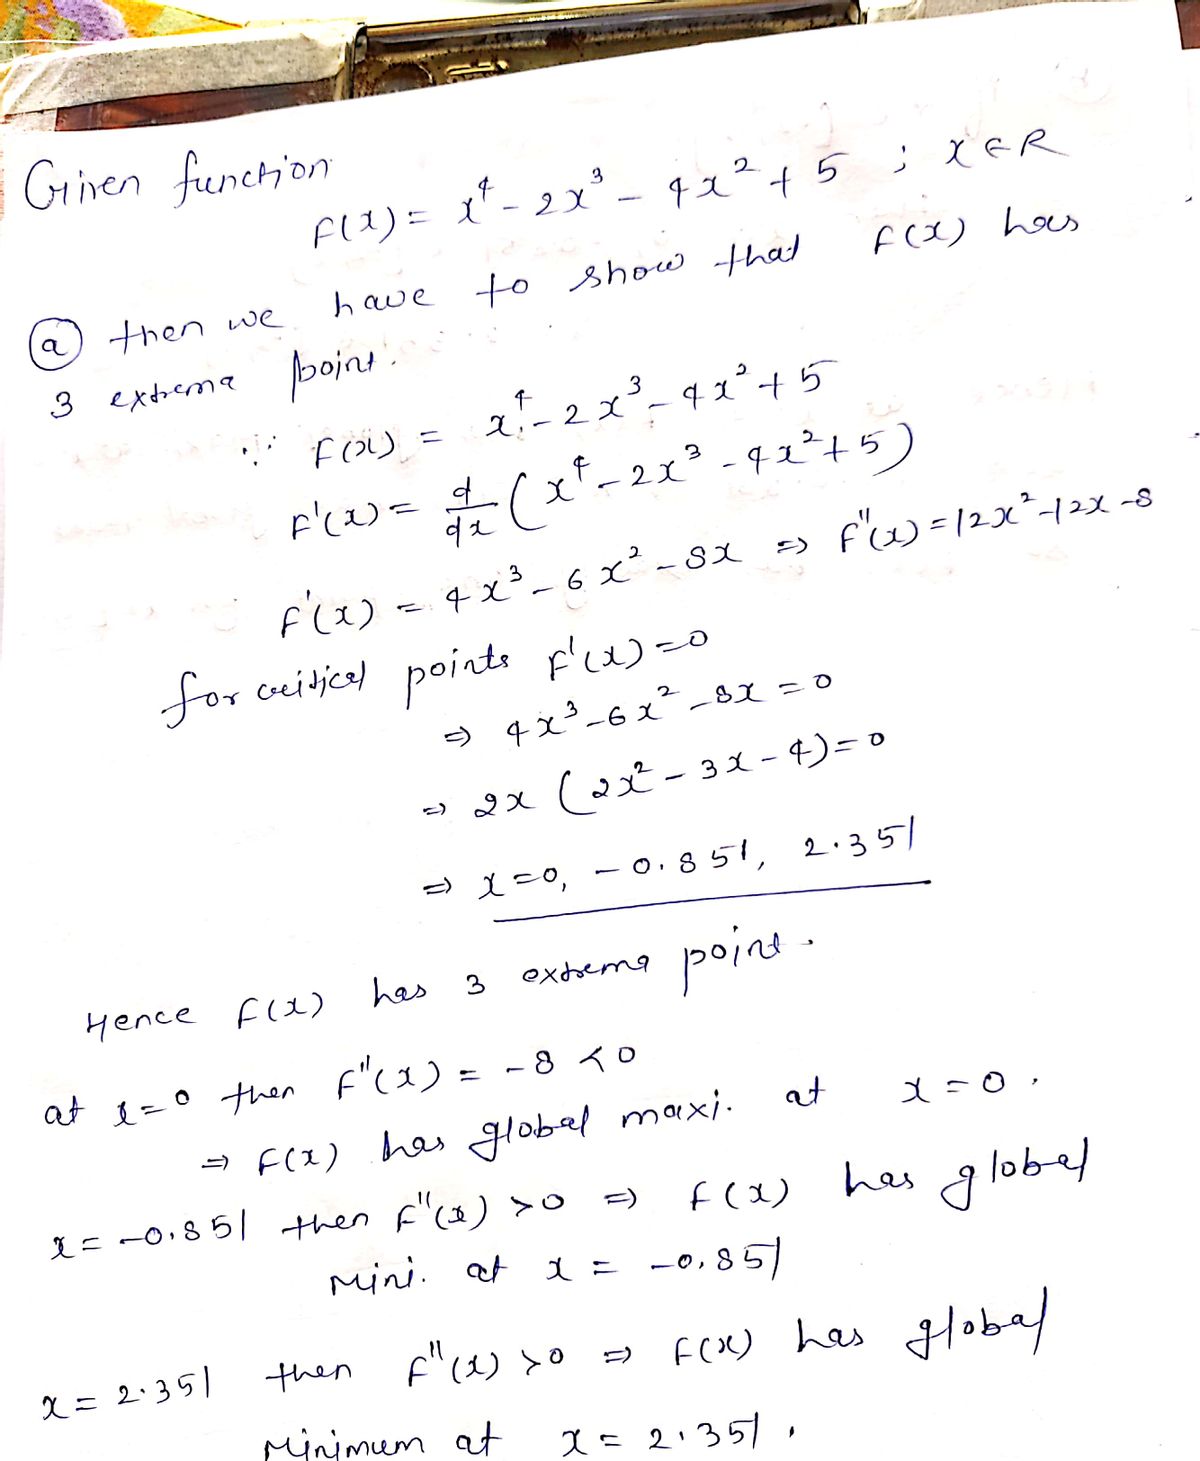 Given function
F(x) = x⁴ - 2x³ - 4x² + 5 ; x ∈ R
ⓐ then we have to show that F(x) has
3 extrema point.
∵ F(x) = x⁴ - 2x³ - 4x² + 5
F'(x) = d/dx (x⁴ - 2x³ - 4x² + 5)
F'(x) = 4x³ - 6x² - 8x ⇒ F''(x) = 12x² - 12x - 8
for critical points F'(x) = 0
⇒ 4x³ - 6x² - 8x = 0
⇒ 2x (2x² - 3x - 4) = 0
⇒ x = 0, - 0.851, 2.351
Hence F(x) has 3 extrema point.
at x = 0 then F''(x) = - 8 < 0
⇒ F(x) has global maxi. at x = 0.
x = -0.851 then F''(x) > 0 ⇒ F(x) has global
Mini. at x = -0.851
x = 2.351 then F''(x) > 0 ⇒ F(x) has global
Minimum at x = 2.351.